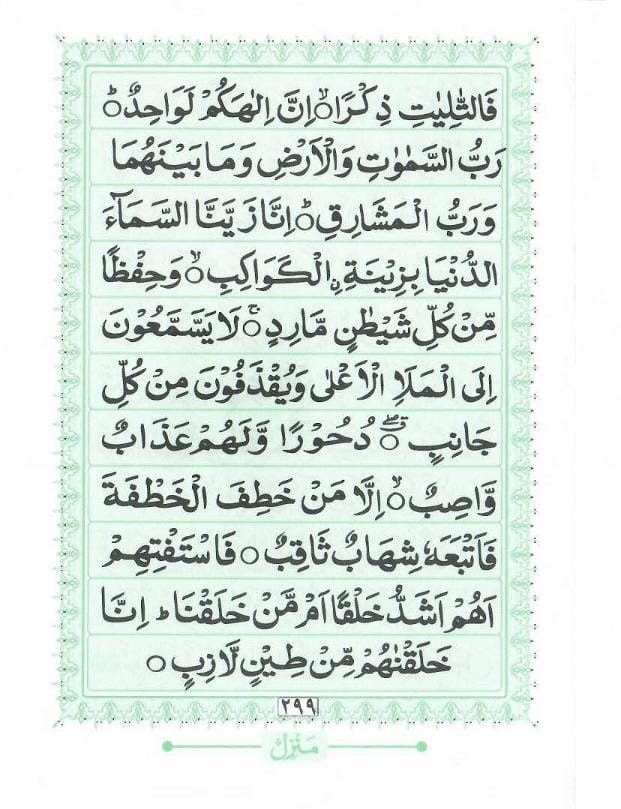 فَالتّٰلِيٰتِ ذِكْرًا ۙ○ اِنَّ اِلٰهَكُمْ لَوَاحِدٌ ؕ○
رَبُّ السَّمٰوٰتِ وَالْاَرْضِ وَمَا بَيْنَهُمَا
وَرَبُّ الْمَشَارِقِ ؕ○ اِنَّا زَيَّنَّا السَّمَآءَ
الدُّنْيَا بِزِيْنَةِ ۨالْكَوَاكِبِ ۙ○ وَحِفْظًا
مِّنْ كُلِّ شَيْطٰنٍ مَّارِدٍ ۚ○ لَا يَسَّمَّعُوْنَ
اِلَى الْمَلَاِ الْاَعْلٰى وَيُقْذَفُوْنَ مِنْ كُلِّ
جَانِبٍ ۖۗ○ دُحُوْرًا وَّلَهُمْ عَذَابٌ
وَّاصِبٌ ۙ○ اِلَّا مَنْ خَطِفَ الْخَطْفَةَ
فَاَتْبَعَهٗ شِهَابٌ ثَاقِبٌ ○ فَاسْتَفْتِهِمْ
اَهُمْ اَشَدُّ خَلْقًا اَمْ مَّنْ خَلَقْنَا ؕ اِنَّا
خَلَقْنٰهُمْ مِّنْ طِيْنٍ لَّازِبٍ ○
٢٩٩
مَنْزِلْ